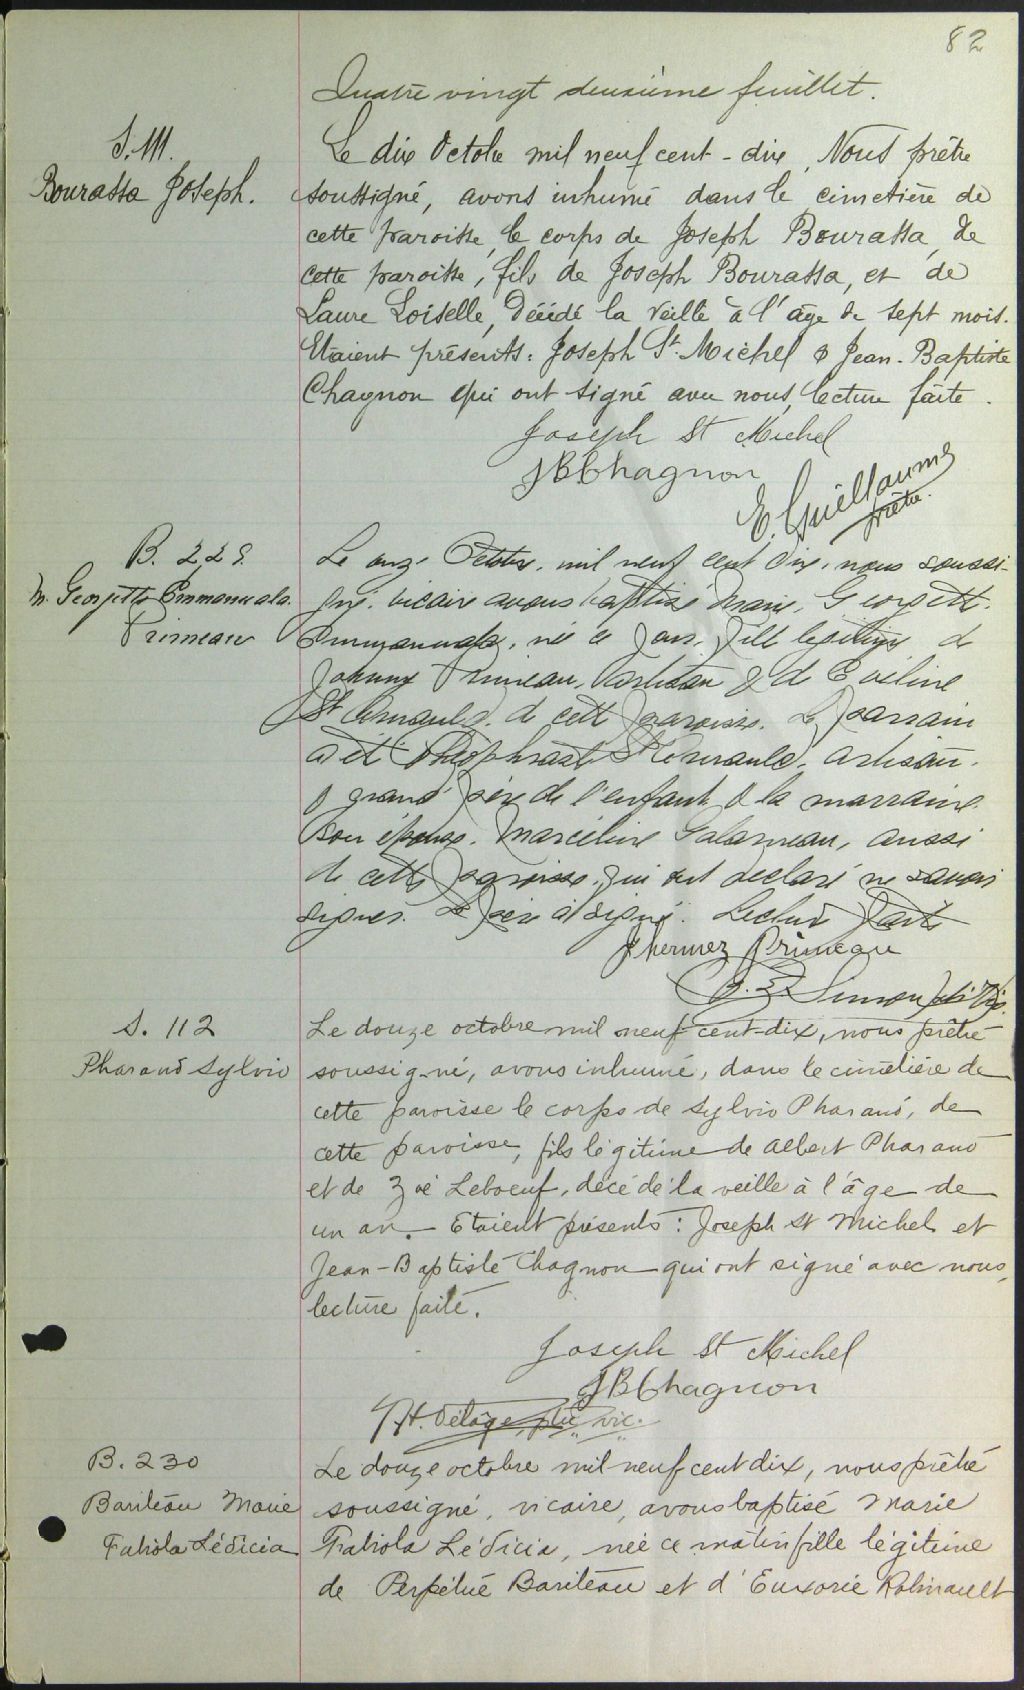 82
Quatre vingt deuxième feuillet.
S. 111.
Bourassa Joseph.
Le dix Octobre mil neuf cent-dix, Nous prêtre
soussigné, avons inhumé dans le cimetière de
cette paroisse, le corps de Joseph Bourassa, de
cette paroisse, fils de Joseph Bourassa, et de
Laure Loiselle, décédé la veille à l'âge de sept mois.
Etaient présents: Joseph St. Michel & Jean-Baptiste
Chagnon qui ont signé avec nous, lecture faite.
Joseph St Michel
JBChagnon
E. Guillaume
prêtre.
B. 229.
M. Georgette Emmanuela
Primeau
Le onze Octobre, mil neuf cent dix, nous soussi-
gné, vicaire avons baptisé Marie, Georgette
Emmanuela, née ce jour, fille légitime de
Johnny Primeau, artisan & de Eveline
St Arnauld, de cette paroisse. Le parrain
a été Théophraste St Arnauld, artisan,
& grand père de l'enfant & la marraine
son épouse, Marceline Galarneau, aussi
de cette paroisse, qui ont déclaré ne savoir
signer. Le père a signé. Lecture faite
Primeau
S. 112
Pharand Sylvio
Le douze octobre mil neuf cent-dix, nous prêtre
soussigné, avons inhumé, dans le cimetière de
cette paroisse le corps de Sylvio Pharand, de
cette paroisse, fils légitime de Albert Pharand
et de Zoé Leboeuf, décédé la veille à l'âge de
un an. Etaient présents: Joseph St Michel et
Jean-Baptiste Chagnon qui ont signé avec nous,
lecture faite.
Joseph St Michel
JBChagnon
H. Délâge, ptre vic.
B. 230
Bariteau Marie
Fabiola Lédicia
Le douze octobre mil neuf cent dix, nous prêtre
soussigné, vicaire, avons baptisé Marie
Fabiola Lédicia, née ce matin fille légitime
de Perpétue Bariteau et d'Euxorie Robinault